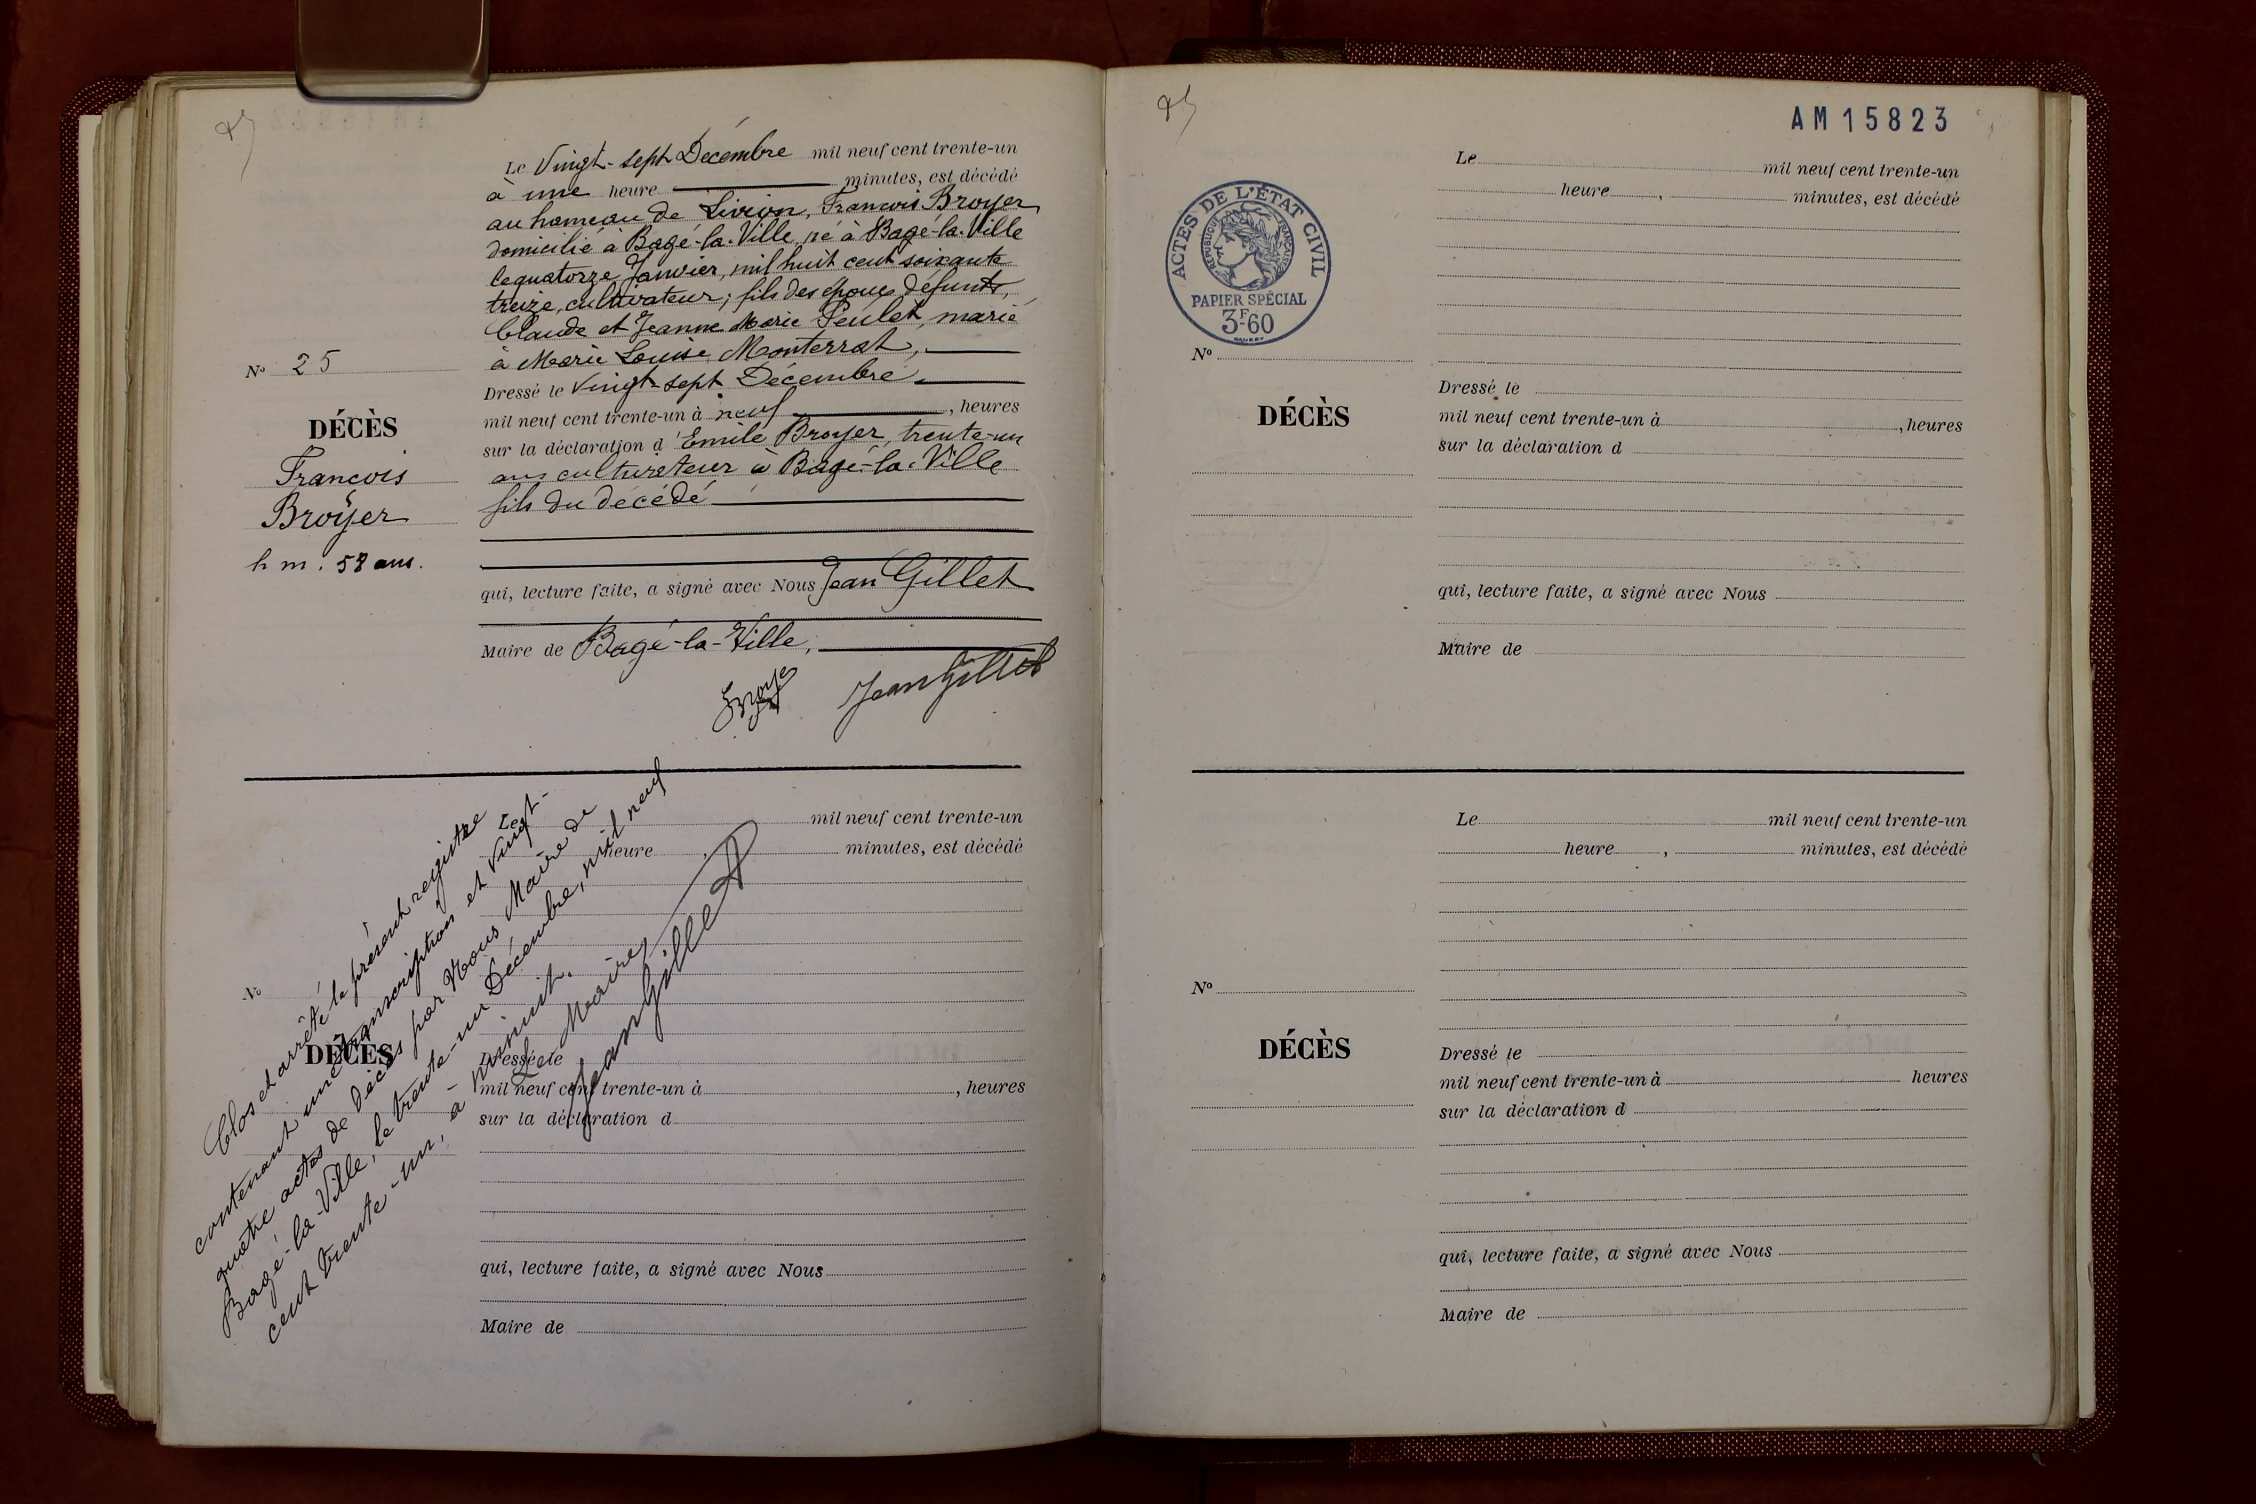 Le Vingt-sept Décembre mil neuf cent trente-un
à une heure minutes, est décédé
au hameau de Livion, Francois Broyer
domicilié à Bagé-la-Ville, né à Bagé-la-Ville
le quatorze Janvier, mil huit cent soixante
treize, cultivateur; fils des époux défunts,
Claude et Jeanne Marie Feulet, marié
à Marie Louise Monterrat,
Dressé le Vingt-sept Décembre,
mil neuf cent trente-un à neuf, heures
sur la déclaration d'Emile Broyer, trente-un
ans cultivateur à Bagé-la-Ville
fils du décédé
qui, lecture faite, a signé avec Nous Jean Gillet
Maire de Bagé-la-Ville,
Broyer Jean Gillet
No 25
DÉCÈS
Francois
Broyer
h m. 58 ans.
Clos et arrêté le présent registre
contenant une transcription et Vingt-
quatre actes de décès par Nous Maire de
Bagé-la-Ville, le trente-un Décembre, mil neuf
cent trente-un, à minuit.
Le Maire,
Jean Gillet
Le mil neuf cent trente-un
heure, minutes, est décédé
No
DÉCÈS
Dressé le
mil neuf cent trente-un à, heures
sur la déclaration d
qui, lecture faite, a signé avec Nous
Maire de
AM 15823
ACTES DE L'ÉTAT CIVIL
RÉPUBLIQUE FRANÇAISE
PAPIER SPÉCIAL
3F-60
Le mil neuf cent trente-un
heure, minutes, est décédé
No
DÉCÈS
Dressé le
mil neuf cent trente-un à, heures
sur la déclaration d
qui, lecture faite, a signé avec Nous
Maire de
Le mil neuf cent trente-un
heure, minutes, est décédé
No
DÉCÈS
Dressé le
mil neuf cent trente-un à heures
sur la déclaration d
qui, lecture faite, a signé avec Nous
Maire de